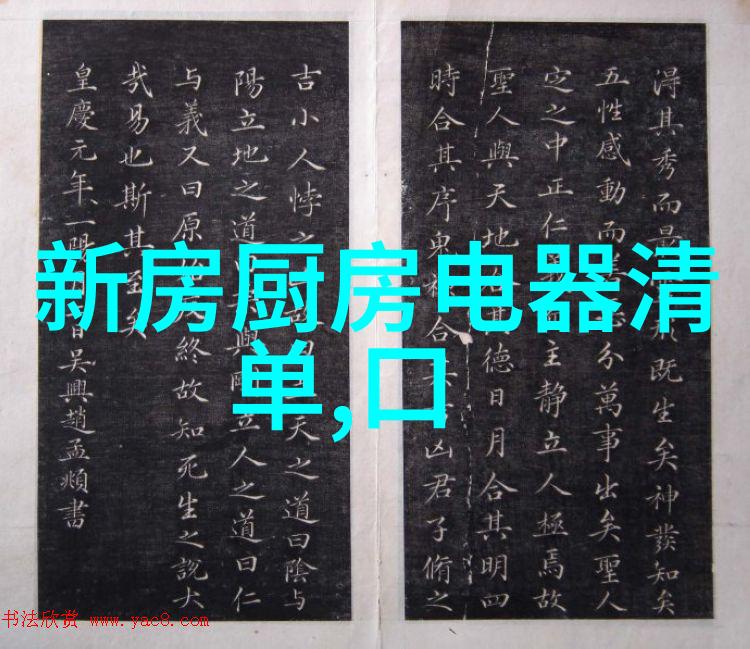 新房厨房电器清
单,口
淂其秀而最 既生矣神發知矣
五性感動而 分萬事出矣聖人
定之中正仁 主靜立人極焉故
聖人與天地 其德日月合其明四
時合其序鬼 合 凶君子脩之
吉小人悖之 天之道曰陰与
陽立地之道 與 立人之道曰仁
与義又曰原 終故知死生之說大
哉易也斯其至矣
皇慶元年一陽 日吳興趙孟頫書
书法欣赏 www.yac8.com